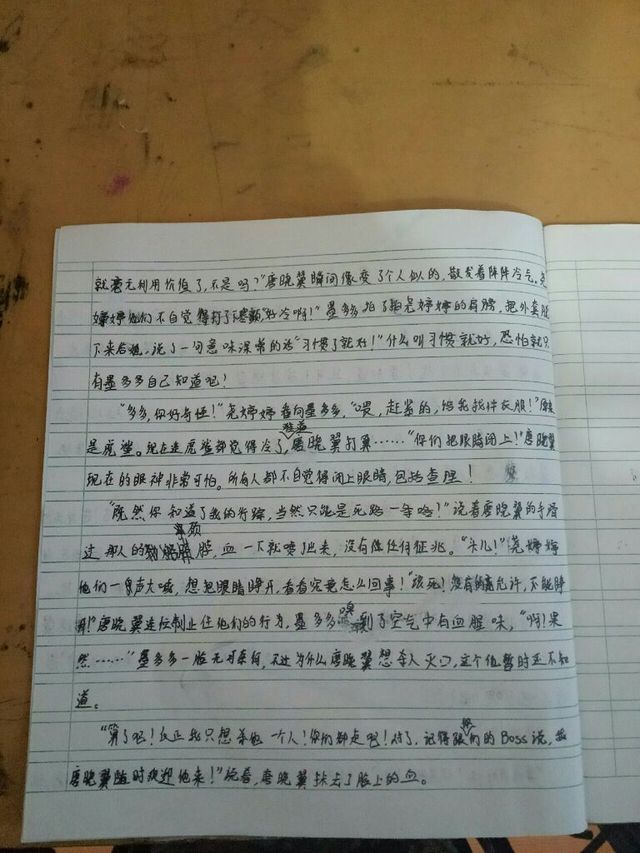 就毫无利用价值了，不是吗？"唐晓翼瞬间像变了个人似的，散发着阵阵冷气。尧
婷婷他们不自觉得打了"好冷啊！"墨多多拍了拍尧婷婷的肩膀，把外套
下来后，说了一句意味深常的话"习惯了就好！"什么叫习惯就好，恐怕就只
有墨多多自己知道吧！
"多多，你好奇怪！"尧婷婷看向墨多多，"喂，赶紧的，给我找件衣服！"
是虎鲨。现在连虎鲨都觉得冷了，难道唐晓翼打算……"你们把眼睛闭上！"唐晓翼
现在的眼神非常可怕。所有人都不自觉得闭上眼睛，包括查理！
"既然你知道了我的行踪，当然只能是死路一条咯！"说着唐晓翼的手滑
过那人的颈，血一下就喷了出来，没有做任何征兆。"头儿！"尧婷婷
他们一声大喊，想把眼睛睁开，看看究竟怎么回事！"该死！没有允许，不能睁
开！"唐晓翼连忙制止住他们的行为，墨多多嗅到了空气中有血腥味，"啊！果
然……"墨多多一脸无可奈何，不过为什么唐晓翼想杀人灭口，这个他暂时还不知
道。
"算了吧！反正我只想杀他一个人！你们都走吧！对了，记得跟你们的Boss说，我
唐晓翼随时欢迎他来！"说着，唐晓翼抹去了脸上的血。